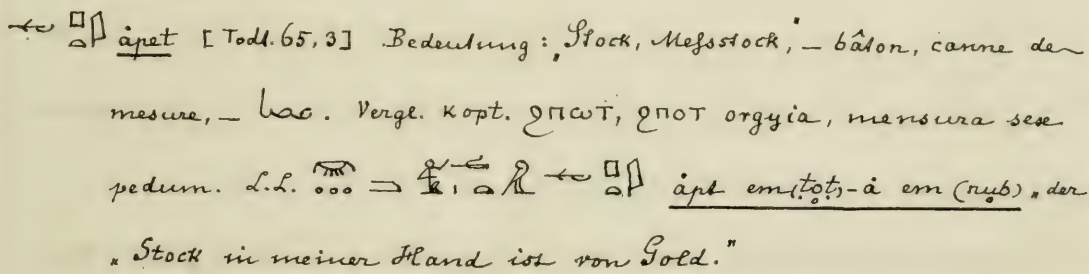 åpet [Todt. 65, 3] Bedeutung: „Stock, Meſsstock‟, – bâton, canne de
mesure, – . Vergl. Kopt. ϩⲡⲱⲧ, ϩⲡⲟⲧ orgyia, mensura sex
pedum. L.L. åpt em (tot)-å em (nub) „der
„Stock in meiner Hand ist von Gold.”